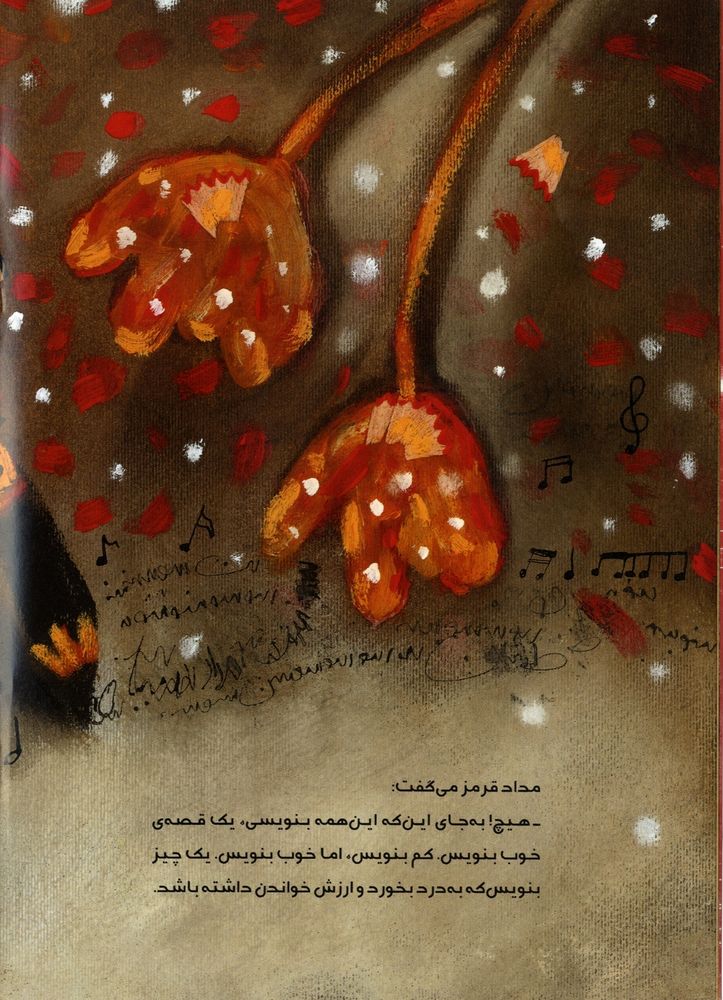 مداد قرمز می‌گفت:
ـ هیچ! به‌جای این‌که این‌همه بنویسی، یک قصه‌ی
خوب بنویس. کم بنویس، اما خوب بنویس. یک چیز
بنویس که به‌درد بخورد و ارزش خواندن داشته باشد.